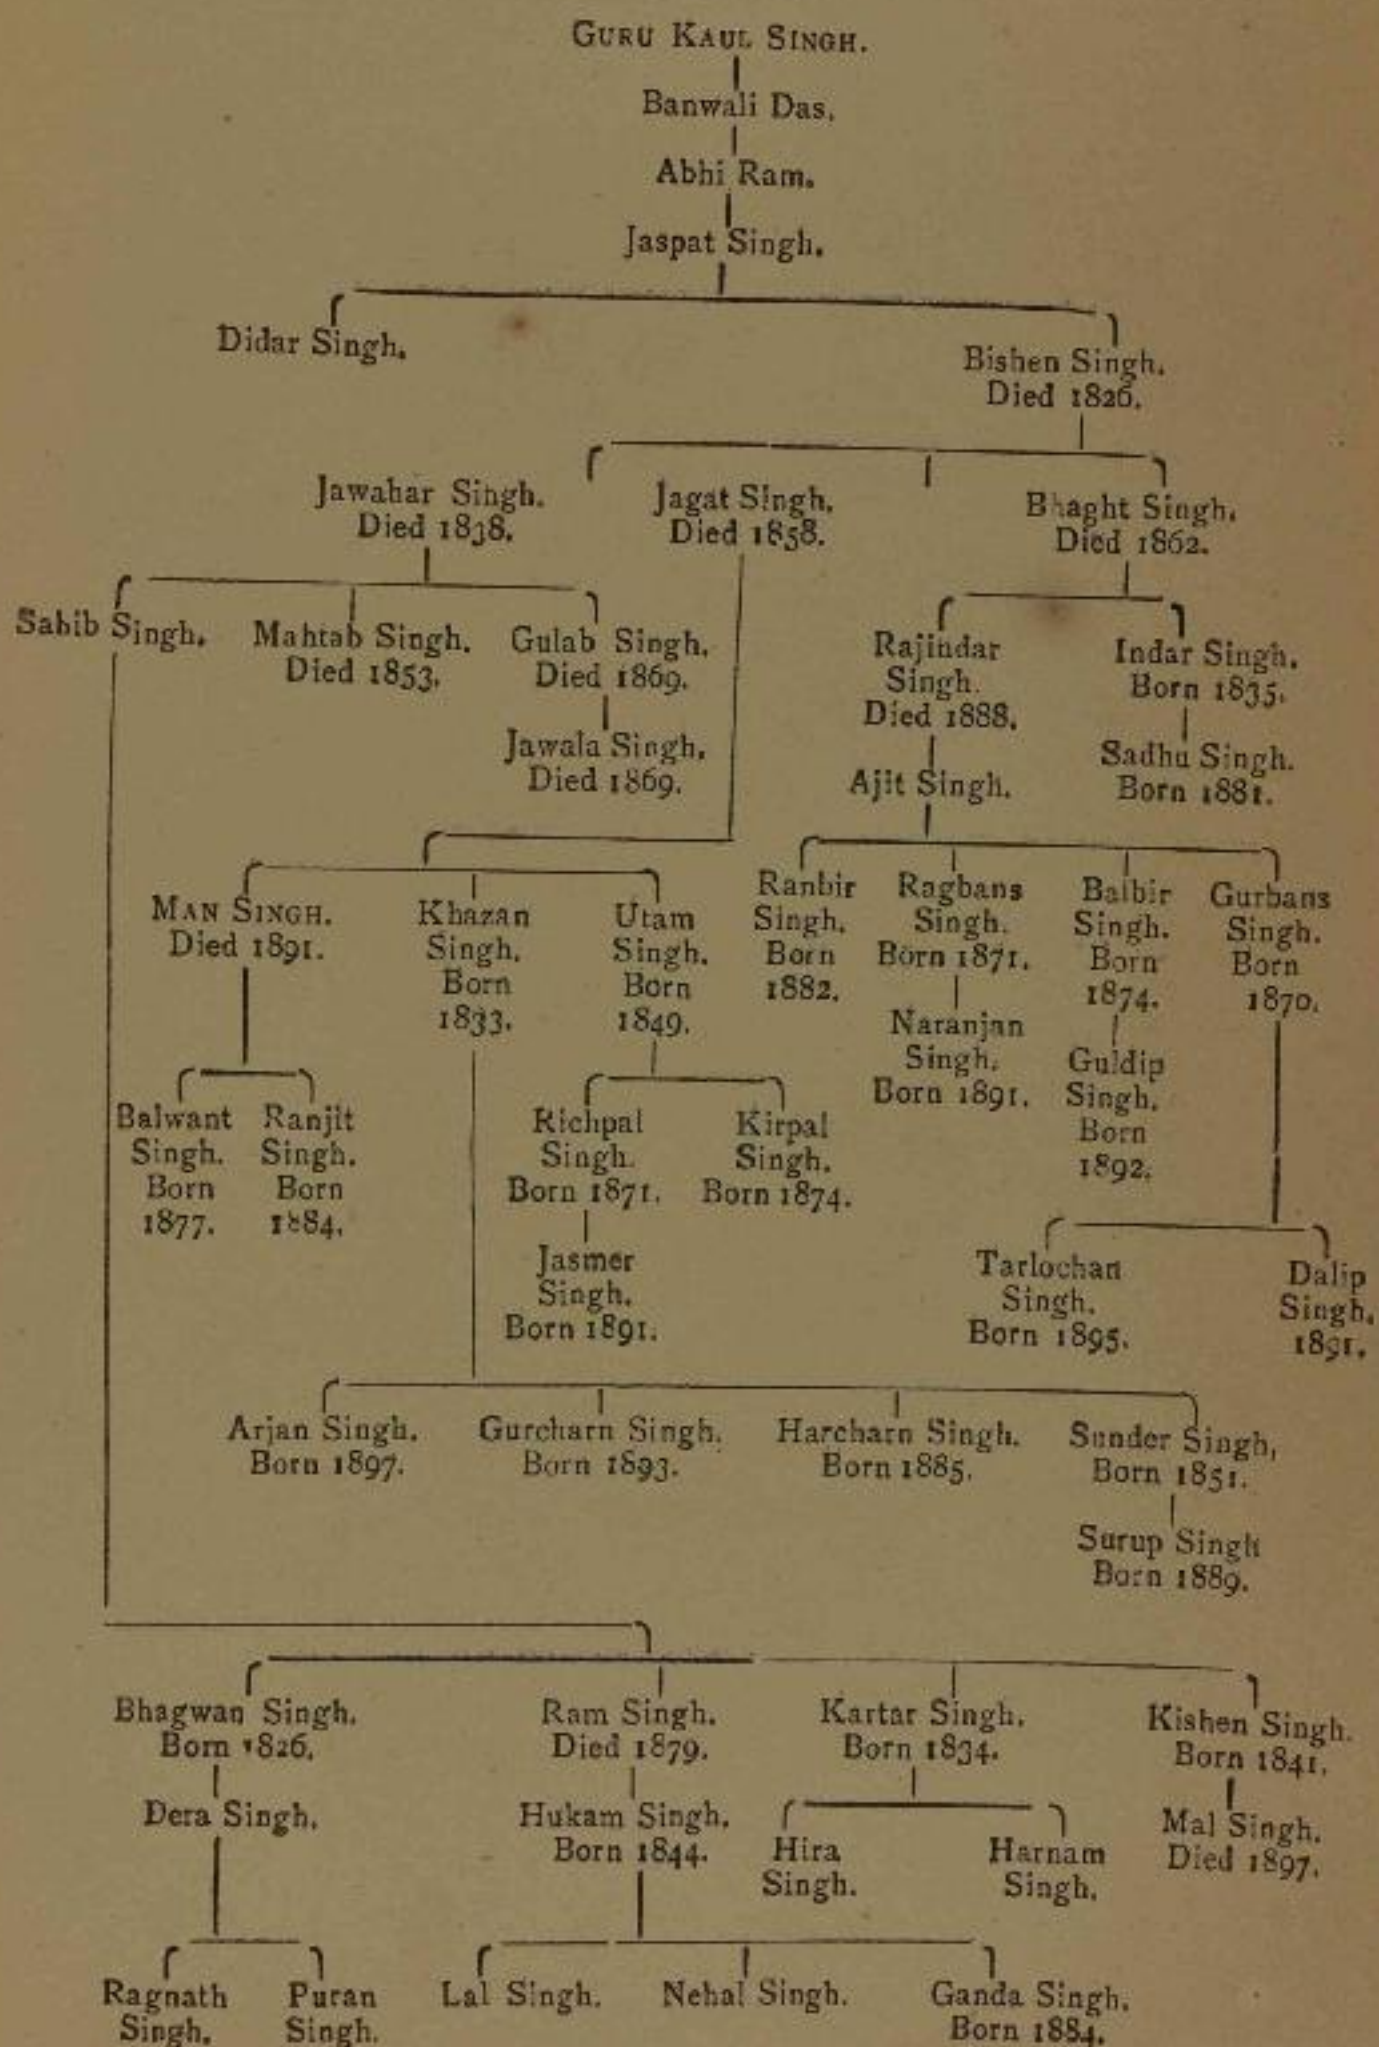 GURU KAUL SINGH.
Banwali Das.
Abhi Ram.
Jaspat Singh.
Didar Singh.
Bishen Singh.
Died 1826.
Jawahar Singh.
Died 1838.
Jagat Singh.
Died 1858.
Bhaght Singh.
Died 1862.
Sahib Singh.
Mahtab Singh.
Died 1853.
Gulab Singh.
Died 1869.
Jawala Singh.
Died 1869.
Rajindar
Singh.
Died 1888.
Ajit Singh.
Indar Singh.
Born 1835.
Sadhu Singh.
Born 1881.
MAN SINGH.
Died 1891.
Khazan
Singh.
Born
1833.
Utam
Singh.
Born
1849.
Ranbir
Singh.
Born
1882.
Ragbans
Singh.
Born 1871.
Naranjan
Singh.
Born 1891.
Balbir
Singh.
Born
1874.
Guldip
Singh.
Born
1892.
Gurbans
Singh.
Born
1870.
Balwant
Singh.
Born
1877.
Ranjit
Singh.
Born
1884.
Richpal
Singh.
Born 1871.
Kirpal
Singh.
Born 1874.
Jasmer
Singh.
Born 1891.
Tarlochan
Singh.
Born 1895.
Dalip
Singh.
1891.
Arjan Singh.
Born 1897.
Gurcharn Singh.
Born 1893.
Harcharn Singh.
Born 1885.
Sunder Singh,
Born 1851.
Surup Singh
Born 1889.
Bhagwan Singh.
Born 1826.
Ram Singh.
Died 1879.
Kartar Singh.
Born 1834.
Kishen Singh.
Born 1841.
Dera Singh.
Hukam Singh.
Born 1844.
Hira
Singh.
Harnam
Singh.
Mal Singh.
Died 1897.
Ragnath
Singh.
Puran
Singh.
Lal Singh.
Nehal Singh.
Ganda Singh.
Born 1884.